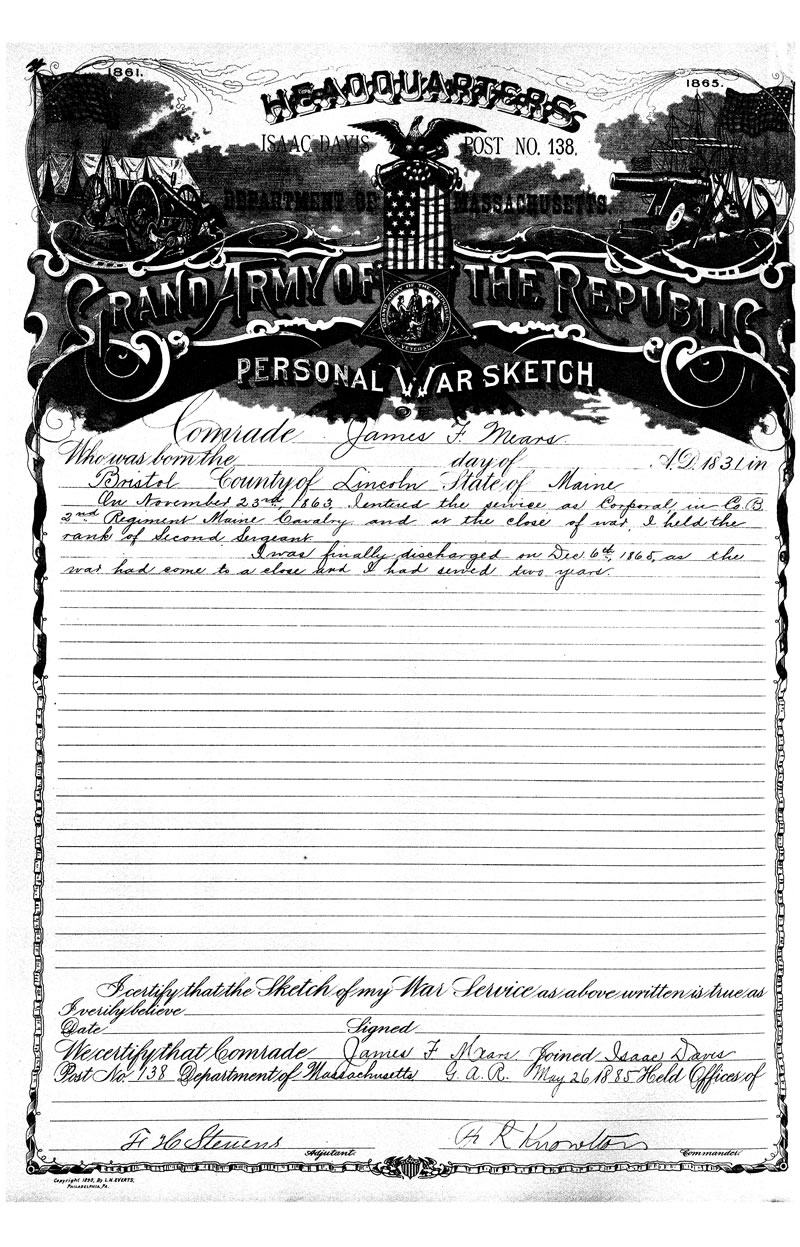 1861.
1865.
HEADQUARTERS
ISAAC DAVIS POST NO. 138.
DEPARTMENT OF MASSACHUSETTS.
GRAND ARMY OF THE REPUBLIC
GRAND ARMY OF THE REPUBLIC
VETERAN
PERSONAL WAR SKETCH
OF
Comrade James F. Mears.
Who was born the day of A.D. 1831 in
Bristol County of Lincoln State of Maine
On November 23rd. 1863, I entred the service as Corporal, in Co. B.
2nd Regiment Maine Cavalry and at the close of war, I held the
rank of Second Sergeant.
I was finally discharged on Dec. 6th, 1865, as the
war had come to a close and I had served two years.
I certify that the Sketch of my War Service as above written is true as
I verily believe
Date Signed
We certify that Comrade James F Mears Joined Isaac Davis
Post No. 138 Department of Massachusetts G. A. R. May 26 1885 Held Offices of
F. H. Stevens
Adjutant.
R Knowlton
Commander.
Copyright 1890, By L.H. EVERTS,
PHILADELPHIA, PA.